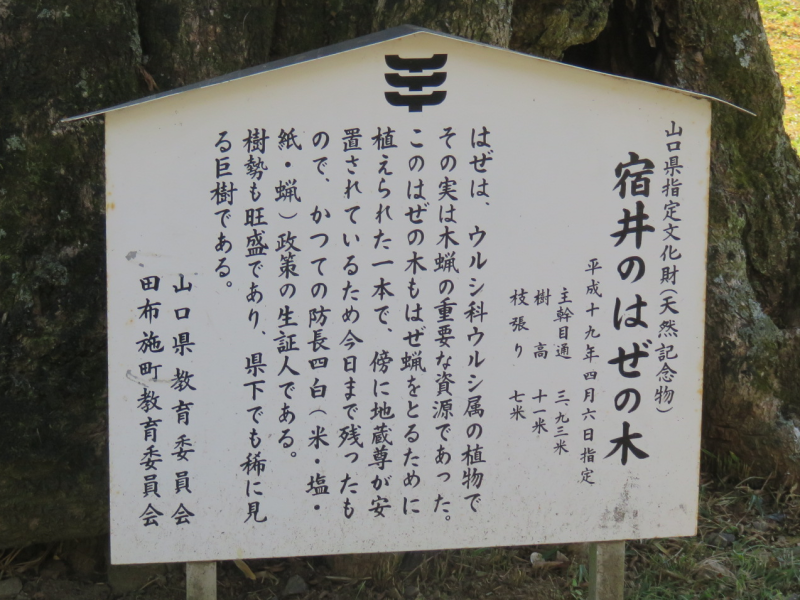 山口県指定文化財(天然記念物)
宿井のはぜの木
平成十九年四月六日指定
主幹目通 三、九三米
樹高 十一米
枝張り 七米
はぜは、ウルシ科ウルシ属の植物で
その実は木蝋の重要な資源であった。
このはぜの木もはぜ蝋をとるために
植えられた一本で、傍に地蔵尊が安
置されているため今日まで残ったも
ので、かつての防長四白(米・塩・
紙・蝋)政策の生証人である。
樹勢も旺盛であり、県下でも稀に見
る巨樹である。
山口県教育委員会
田布施町教育委員会